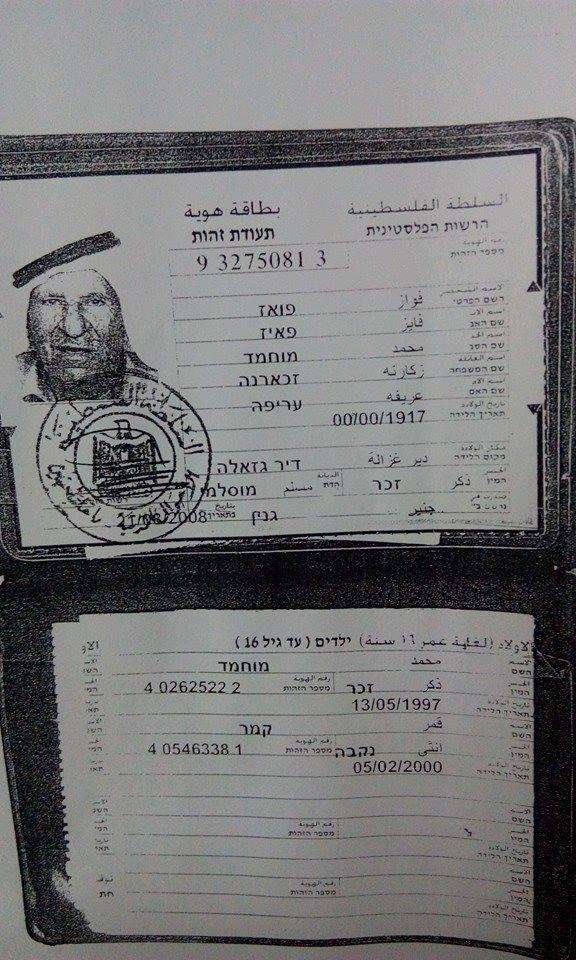 السلطة الفلسطينية بطاقة هوية
הרשות הפלסטינית תעודת זהות
رقم الهوية
מספר הזהות 9 3275081 3
الاسم الشخصي
השם הפרטי فواز פואז
اسم الاب
שם האב فايز פאיז
اسم الجد
שם הסב محمد מוחמד
اسم العائلة
שם המשפחה زكارنه זכארנה
اسم الام
שם האם عريفه עריפה
تاريخ الولادة
תאריך הלידה 00/00/1917
مكان الولادة
מקום הלידה دير غزالة דיר גזאלה
الجنس
המין ذكر זכר الديانة הדת مسلم מוסלמי
صدرت في جنين גנין بتاريخ בתאריך 21/08/2008
الاولاد (لغاية عمر ١٦ سنة) ילדים (עד גיל 16)
الاسم
השם محمد מוחמד
الجنس
המין ذكر זכר رقم الهوية מספר הזהות 4 0262522 2
تاريخ الولادة
תאריך הלידה 13/05/1997
الاسم
השם قمر קמר
الجنس
המין انثى נקבה رقم الهوية מספר הזהות 4 0546338 1
تاريخ الولادة
תאריך הלידה 05/02/2000
الاسم
השם
الجنس
המין رقم الهوية מספר הזהות
تاريخ الولادة
תאריך הלידה
الاسم
השם
الجنس
המין رقم الهوية מספר הזהות
تاريخ الولادة
תאריך הלידה